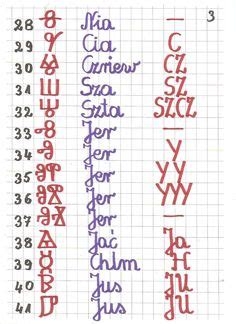 3
28 Nia —
29 Ⱌ Cia C
30 Ⱍ Czriew CZ
31 Ⱎ Sza SZ
32 Ⱋ Szta SZCZ
33 Jer —
34 Jer Y
35 Jer YY
36 Jer YYY
37 Jer —
38 Ⱑ Jać Ja
39 Chłm H
40 Jus JU
41 Jus JU